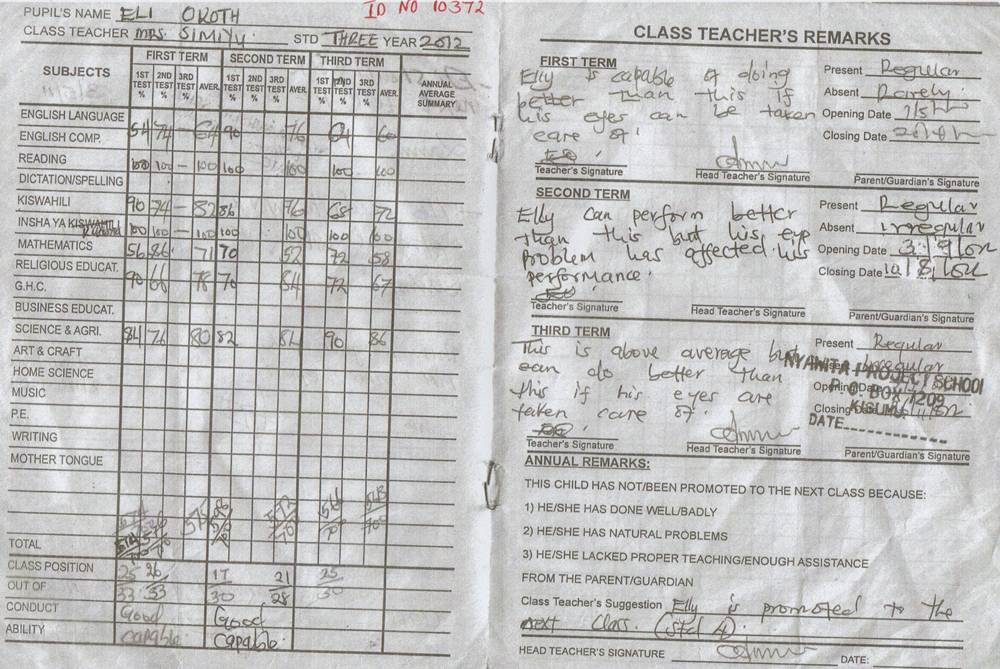 PUPIL'S NAME ELI OKOTH
ID NO 10372
CLASS TEACHER MRS. SIMIYU. STD THREE YEAR 2012
SUBJECTS
FIRST TERM SECOND TERM THIRD TERM
1ST TEST % 2ND TEST % 3RD TEST % AVER. 1ST TEST % 2ND TEST % 3RD TEST % AVER. 1ST TEST % 2ND TEST % 3RD TEST % AVER. ANNUAL AVERAGE SUMMARY
ENGLISH LANGUAGE
ENGLISH COMP. 54 74 - 64 90 76 64 60
READING
DICTATION/SPELLING 100 100 - 100 100 100 100 100
KISWAHILI
INSHA YA KISWAHILI 90 74 - 82 86 76 68 72
100 100 - 100 100 100 100 100
MATHEMATICS 56 86 71 70 52 72 58
RELIGIOUS EDUCAT.
G.H.C. 90 66 78 70 84 72 67
BUSINESS EDUCAT.
SCIENCE & AGRI. 84 76 80 82 82 90 86
ART & CRAFT
HOME SCIENCE
MUSIC
P.E.
WRITING
MOTHER TONGUE
TOTAL
CLASS POSITION 25 26 17 21 25
OUT OF 33 33 30 28 30
CONDUCT Good Good
ABILITY Capable Capable.
CLASS TEACHER'S REMARKS
FIRST TERM
Elly is capable of doing
better than this if
his eyes can be taken
care of.
Present Regular
Absent Rarely
Opening Date
Closing Date
Teacher's Signature Head Teacher's Signature Parent/Guardian's Signature
SECOND TERM
Elly can perform better
than this but his eye
problem has affected his
performance.
Present Regular
Absent irregular
Opening Date
Closing Date
Teacher's Signature Head Teacher's Signature Parent/Guardian's Signature
THIRD TERM
This is above average but
can do better than
this if his eyes are
taken care of.
Present Regular
Absent Irregular
Opening Date
Closing Date
NYANITA PROJECT SCHOOL
P. O. BOX 7209
KISUMU
DATE:
Teacher's Signature Head Teacher's Signature Parent/Guardian's Signature
ANNUAL REMARKS:
THIS CHILD HAS NOT/BEEN PROMOTED TO THE NEXT CLASS BECAUSE:
1) HE/SHE HAS DONE WELL/BADLY
2) HE/SHE HAS NATURAL PROBLEMS
3) HE/SHE LACKED PROPER TEACHING/ENOUGH ASSISTANCE
FROM THE PARENT/GUARDIAN
Class Teacher's Suggestion Elly is promoted to the
next class. (std 4).
HEAD TEACHER'S SIGNATURE DATE: